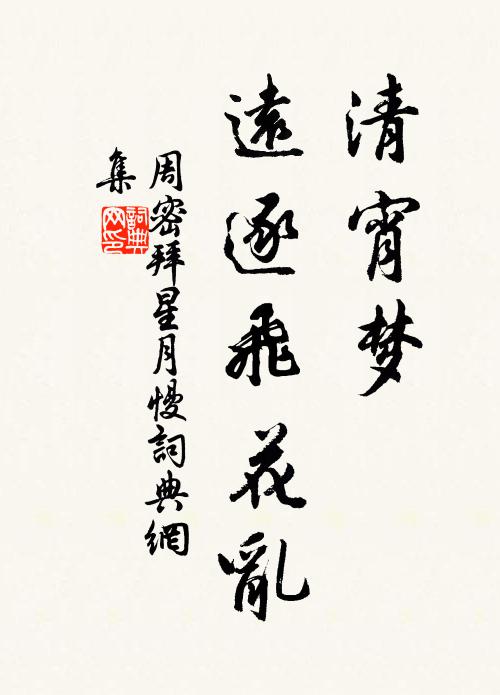 清宵梦
遠逐飛花亂
周密拜星月慢詞典網
集
詞典
网印